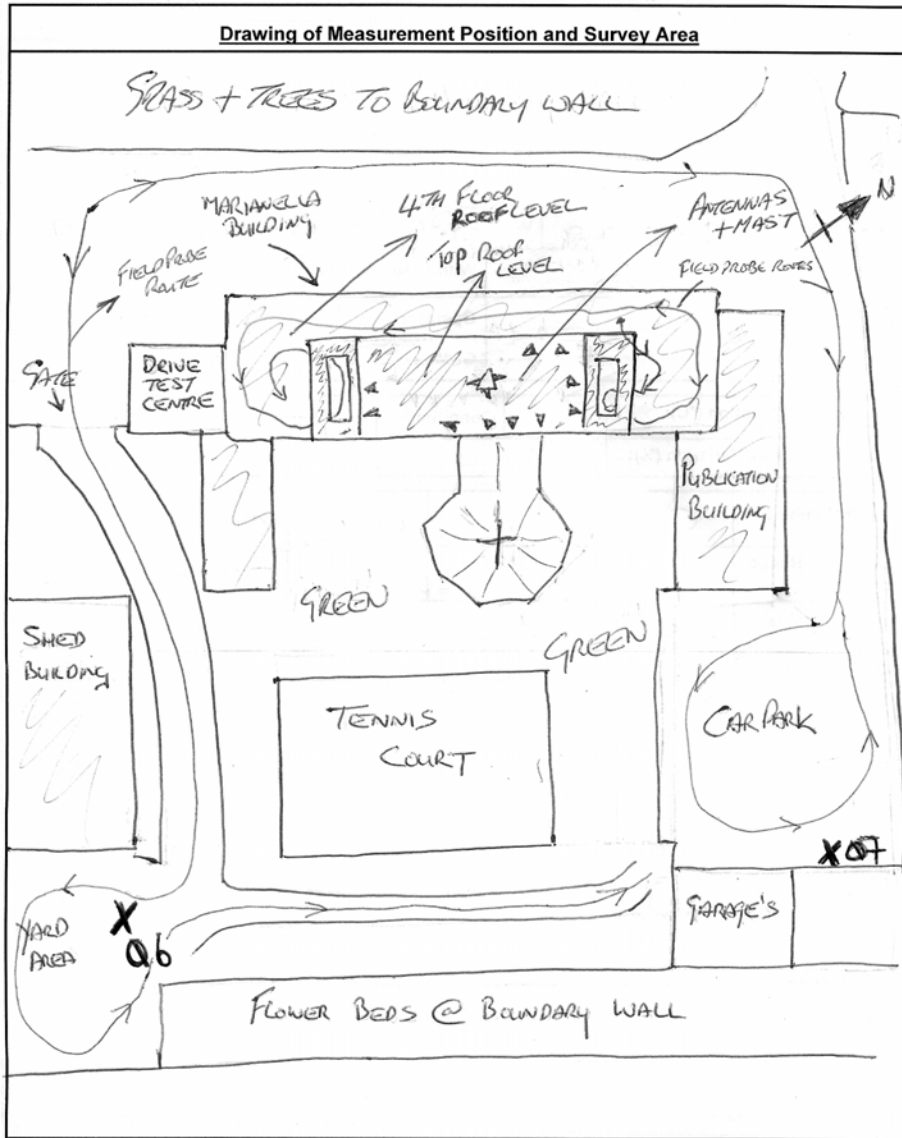 Drawing of Measurement Position and Survey Area
GRASS + TREES TO BOUNDARY WALL
MARIANELLA
BUILDING
4TH FLOOR
ROOF LEVEL
TOP ROOF
LEVEL
ANTENNAS
+ MAST
N
FIELD PROBE
ROUTE
FIELD PROBE ROUTES
GATE
DRIVE
TEST
CENTRE
PUBLICATION
BUILDING
GREEN
GREEN
SHED
BUILDING
TENNIS
COURT
CAR PARK
X Q7
X
Q6
YARD
AREA
GARAGE'S
FLOWER BEDS @ BOUNDARY WALL